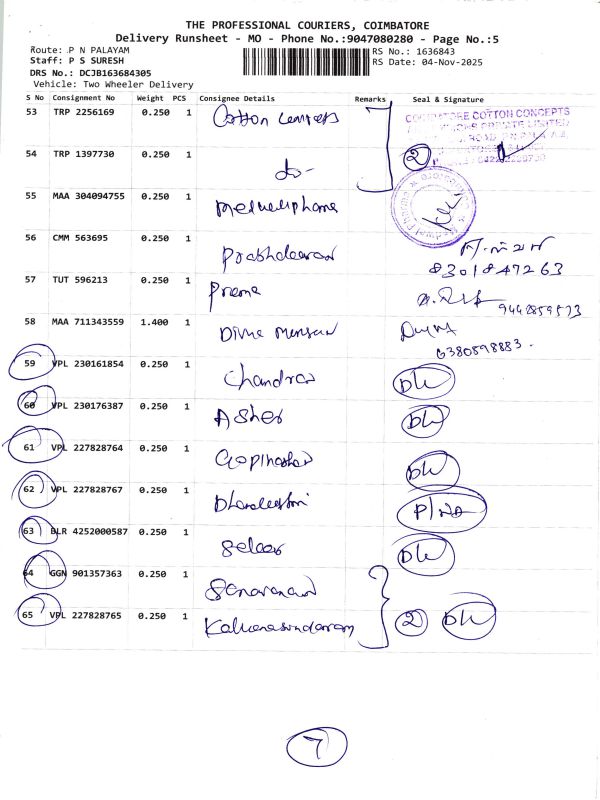 THE PROFESSIONAL COURIERS, COIMBATORE
Delivery Runsheet - MO - Phone No.:9047080280 - Page No.:5
Route: P N PALAYAM
Staff: P S SURESH
DRS No.: DCJB163684305
Vehicle: Two Wheeler Delivery
RS No.: 1636843
RS Date: 04-Nov-2025
S No Consignment No Weight PCS Consignee Details Remarks Seal & Signature
53 TRP 2256169 0.250 1 Cotton COTTON CONCEPTS
PRIVATE LIMITED
54 TRP 1397730 0.250 1 do- 2
55 MAA 304094755 0.250 1
56 CMM 563695 0.250 1 Prabhakaran
8301847263
57 TUT 596213 0.250 1 Prema
9442859573
58 MAA 711343559 1.400 1 Divine
6380598883.
59 VPL 230161854 0.250 1 Chandran DL
60 VPL 230176387 0.250 1 Asher DL
61 VPL 227828764 0.250 1 Gopinathan DL
62 VPL 227828767 0.250 1
63 BLR 4252000587 0.250 1 DL
64 GGN 901357363 0.250 1
65 VPL 227828765 0.250 1 Kalyanasundaram 2 DL
7